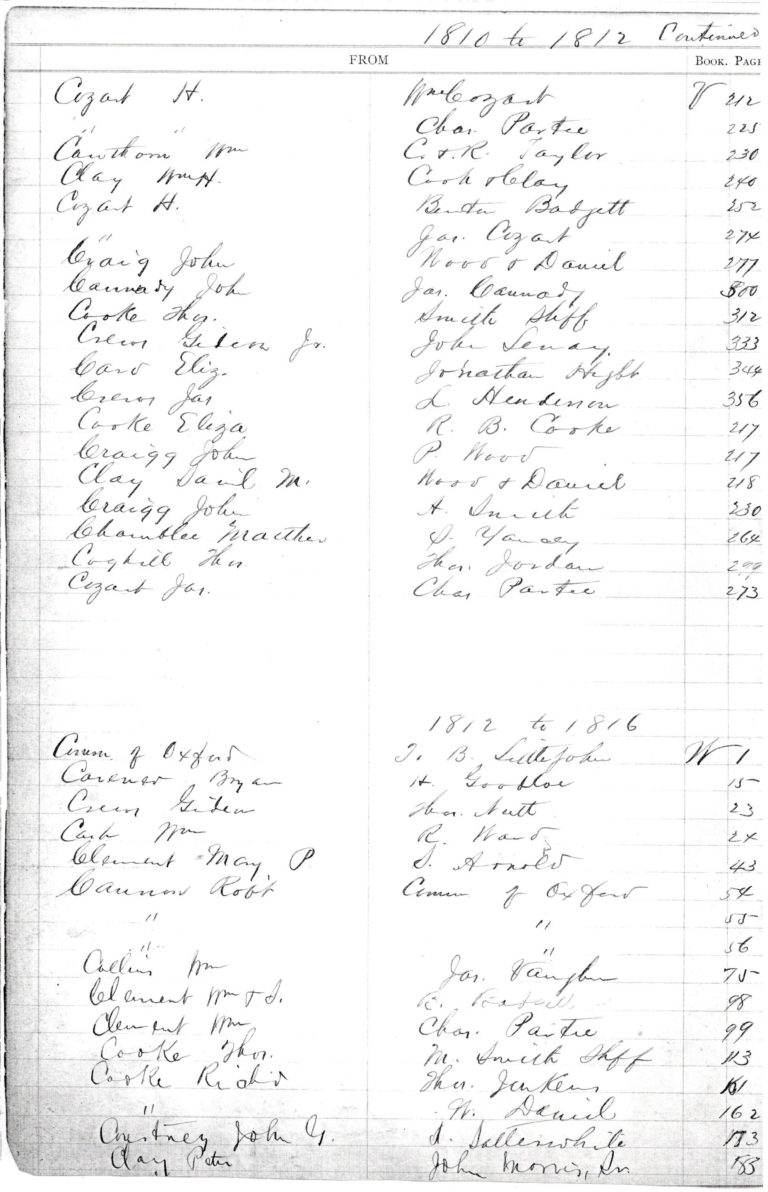 1810 to 1812 Continued
FROM BOOK. PAGE
Cozart H. Wm Cozart V 212
" " Chas. Partee 225
Cawthorn Wm C. & R. Taylor 230
Clay Wm H. Cook & Clay 240
Cozart H. Benton Badgett 252
" Jas. Cozart 274
Craig John Wood & Daniel 277
Cannady John Jas. Cannady 300
Cooke Thos. Smith Shff 312
Crews Gideon Jr. John 333
Card Eliz. Jonathan Hight 344
Crews Jas L. Henderson 356
Cooke Eliza R. B. Cooke 217
Craigg John P. Wood 217
Clay Danil M. Wood & Daniel 218
Craigg John A. Smith 230
Chamblee Matthew S. Yancey 264
Coghill Thos Thos. Jordan 299
Cozart Jas. Chas Partee 273
1812 to 1816
Comm. of Oxford T. B. Littlejohn W 1
Bryan H. Goodloe 15
Crews Gideon Thos. Nutt 23
Cash Wm R. Ward 24
Clement May P S. Arnold 43
Cannon Robt Comm of Oxford 54
" " 55
" " 56
Collins Wm Jas. Vaughn 75
Clement Wm & S. 98
Clement Wm Chas. Partee 99
Cooke Thos. M. Smith Shff 113
Cooke Richd Thos. Jenkens
" W. Daniel 162
Courtney John G. Satterwhite 173
Clay Peter John Morris, Sr 183